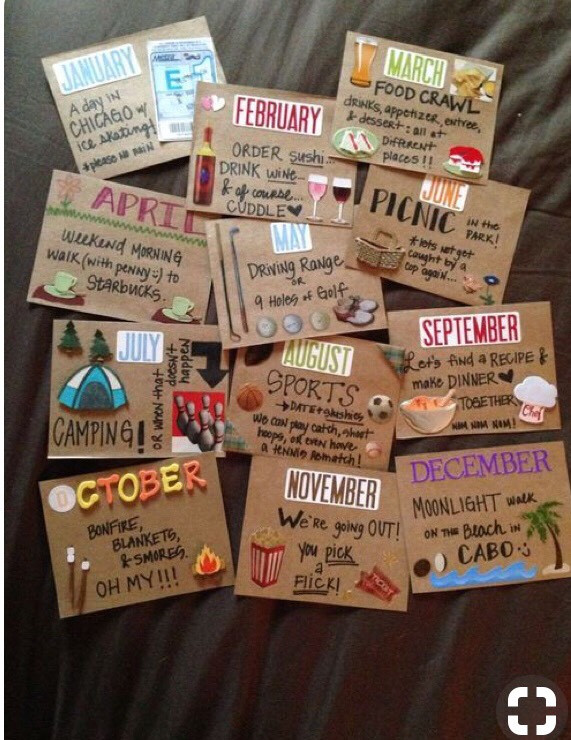 JANUARY
A day in
CHICAGO w/
ice skating!
*please no rain
E
FEBRUARY
ORDER sushi...
DRINK wine...
& of course...
CUDDLE
MARCH
FOOD CRAWL
drinks, appetizer, entree,
& dessert: all at
Different
places!!
APRIL
Weekend MORNING
walk (with penny :) to
Starbucks.
MAY
DRIVING Range
OR
9 Holes of Golf
JUNE
PICNIC in the
PARK!
*lets not get
caught by a
cop again...
JULY
CAMPING!
OR when that
doesn't
happen
AUGUST
SPORTS
DATE + slushies
We can play catch, shoot
hoops, or even have
a tennis rematch!
SEPTEMBER
Let's find a RECIPE &
make DINNER
TOGETHER
NOM NOM NOM!
Chef
OCTOBER
BONFIRE,
BLANKETS,
& SMORES.
OH MY!!!
NOVEMBER
We're going OUT!
you pick
a
FLICK!
TICKET
DECEMBER
MOONLIGHT walk
ON THE Beach in
CABO :)